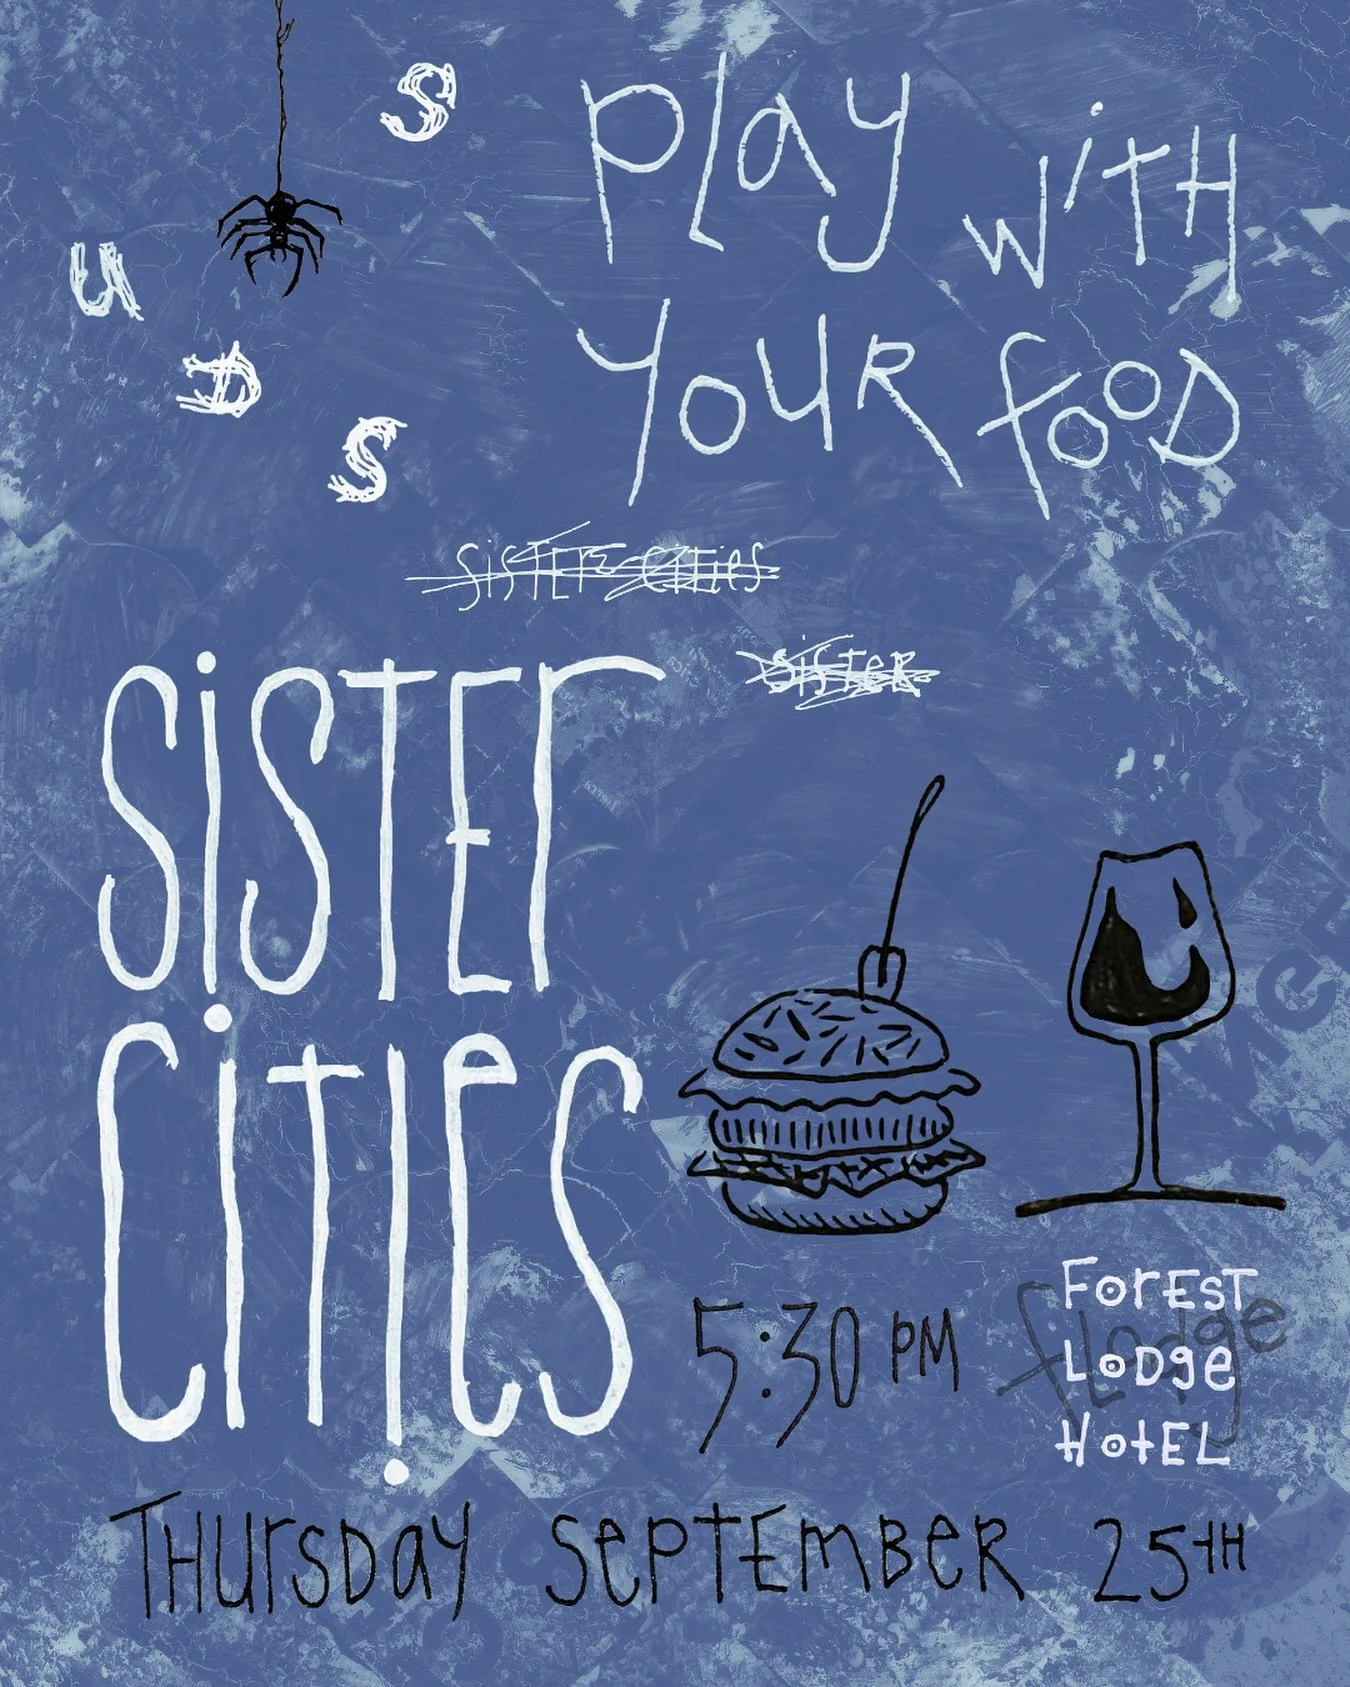 S
U
D
S
PLay wiTH
YOUR fOOD
SiSTEr CiTies
SiSTeR
SiSTEr
CiTIeS
5:30 PM
ForEST
LoDge
HotEL
fLodge
THUrSDay SePTEmBeR 25TH